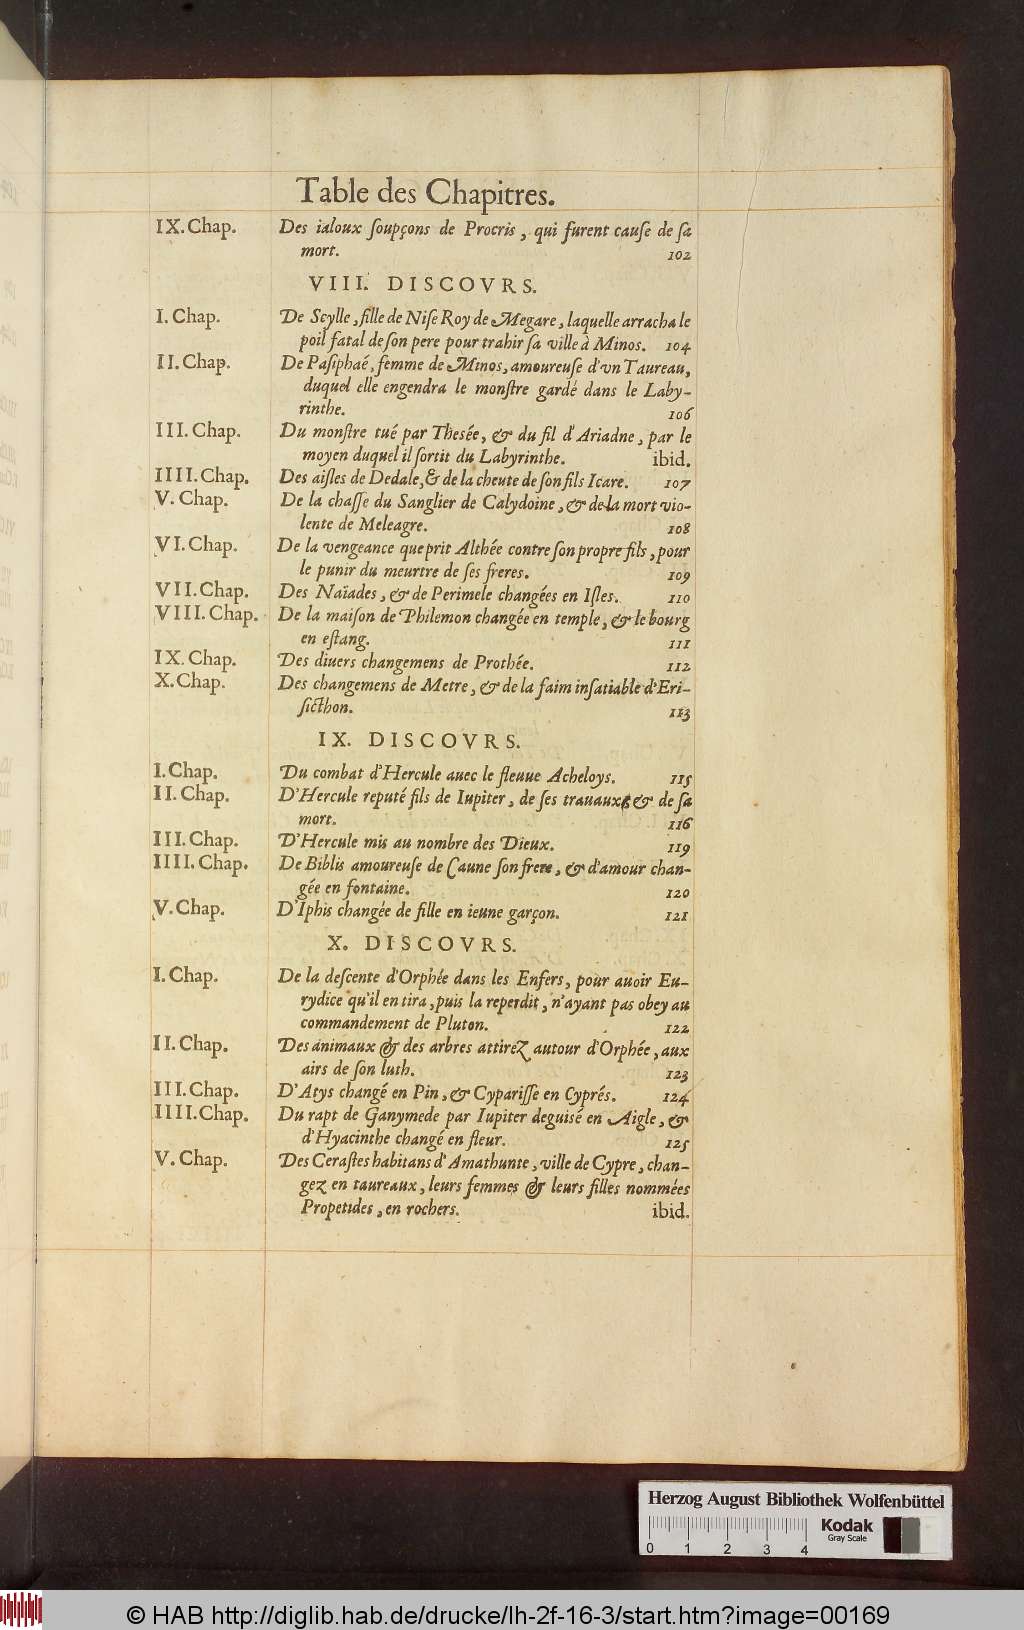 Table des Chapitres.
IX. Chap. Des ialoux ſoupçons de Procris, qui furent cauſe de ſa
mort. 102
VIII. DISCOVRS.
I. Chap. De Scylle, fille de Niſe Roy de Megare, laquelle arracha le
poil fatal de ſon pere pour trahir ſa ville à Minos. 104
II. Chap. De Paſiphaé, femme de Minos, amoureuſe d'vn Taureau,
duquel elle engendra le monſtre gardé dans le Laby-
rinthe. 106
III. Chap. Du monſtre tué par Thesée, & du fil d'Ariadne, par le
moyen duquel il ſortit du Labyrinthe. ibid.
IIII. Chap. Des aiſles de Dedale, & de la cheute de ſon fils Icare. 107
V. Chap. De la chaſſe du Sanglier de Calydoine, & de la mort vio-
lente de Meleagre. 108
VI. Chap. De la vengeance que prit Althée contre ſon propre fils, pour
le punir du meurtre de ſes freres. 109
VII. Chap. Des Naïades, & de Perimele changées en Iſles. 110
VIII. Chap. De la maiſon de Philemon changée en temple, & le bourg
en eſtang. 111
IX. Chap. Des diuers changemens de Prothée. 112
X. Chap. Des changemens de Metre, & de la faim inſatiable d'Eri-
ſicthon. 113
IX. DISCOVRS.
I. Chap. Du combat d'Hercule auec le fleuue Acheloys. 115
II. Chap. D'Hercule reputé fils de Iupiter, de ſes trauaux, & de ſa
mort. 116
III. Chap. D'Hercule mis au nombre des Dieux. 119
IIII. Chap. De Biblis amoureuſe de Caune ſon frere, & d'amour chan-
gée en fontaine. 120
V. Chap. D'Iphis changée de fille en ieune garçon. 121
X. DISCOVRS.
I. Chap. De la deſcente d'Orphée dans les Enfers, pour auoir Eu-
rydice qu'il en tira, puis la reperdit, n'ayant pas obey au
commandement de Pluton. 122
II. Chap. Des animaux & des arbres attirez autour d'Orphée, aux
airs de ſon luth. 123
III. Chap. D'Atys changé en Pin, & Cypariſſe en Cyprés. 124
IIII. Chap. Du rapt de Ganymede par Iupiter deguisé en Aigle, &
d'Hyacinthe changé en fleur. 125
V. Chap. Des Ceraſtes habitans d'Amathunte, ville de Cypre, chan-
gez en taureaux, leurs femmes & leurs filles nommées
Propetides, en rochers. ibid.
Herzog August Bibliothek Wolfenbüttel
0 1 2 3 4
Kodak
Gray Scale
© HAB http://diglib.hab.de/drucke/lh-2f-16-3/start.htm?image=00169